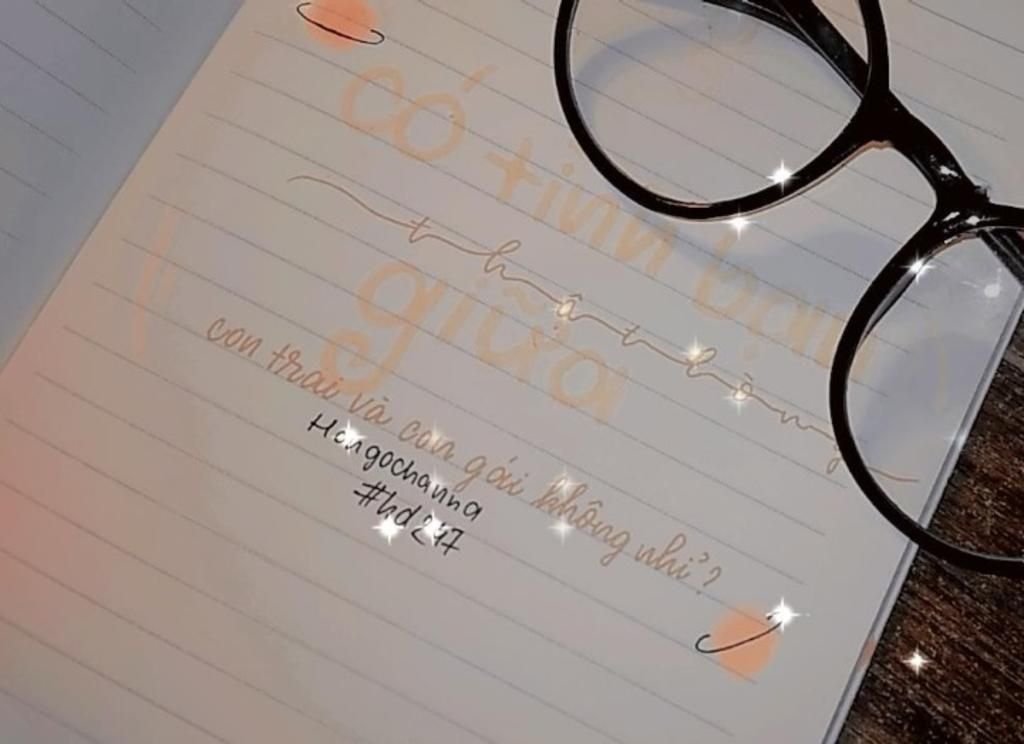 có tình bạn
thật lòng
giữa
con trai và con gái không nhỉ?
Hongochanna
#hd247